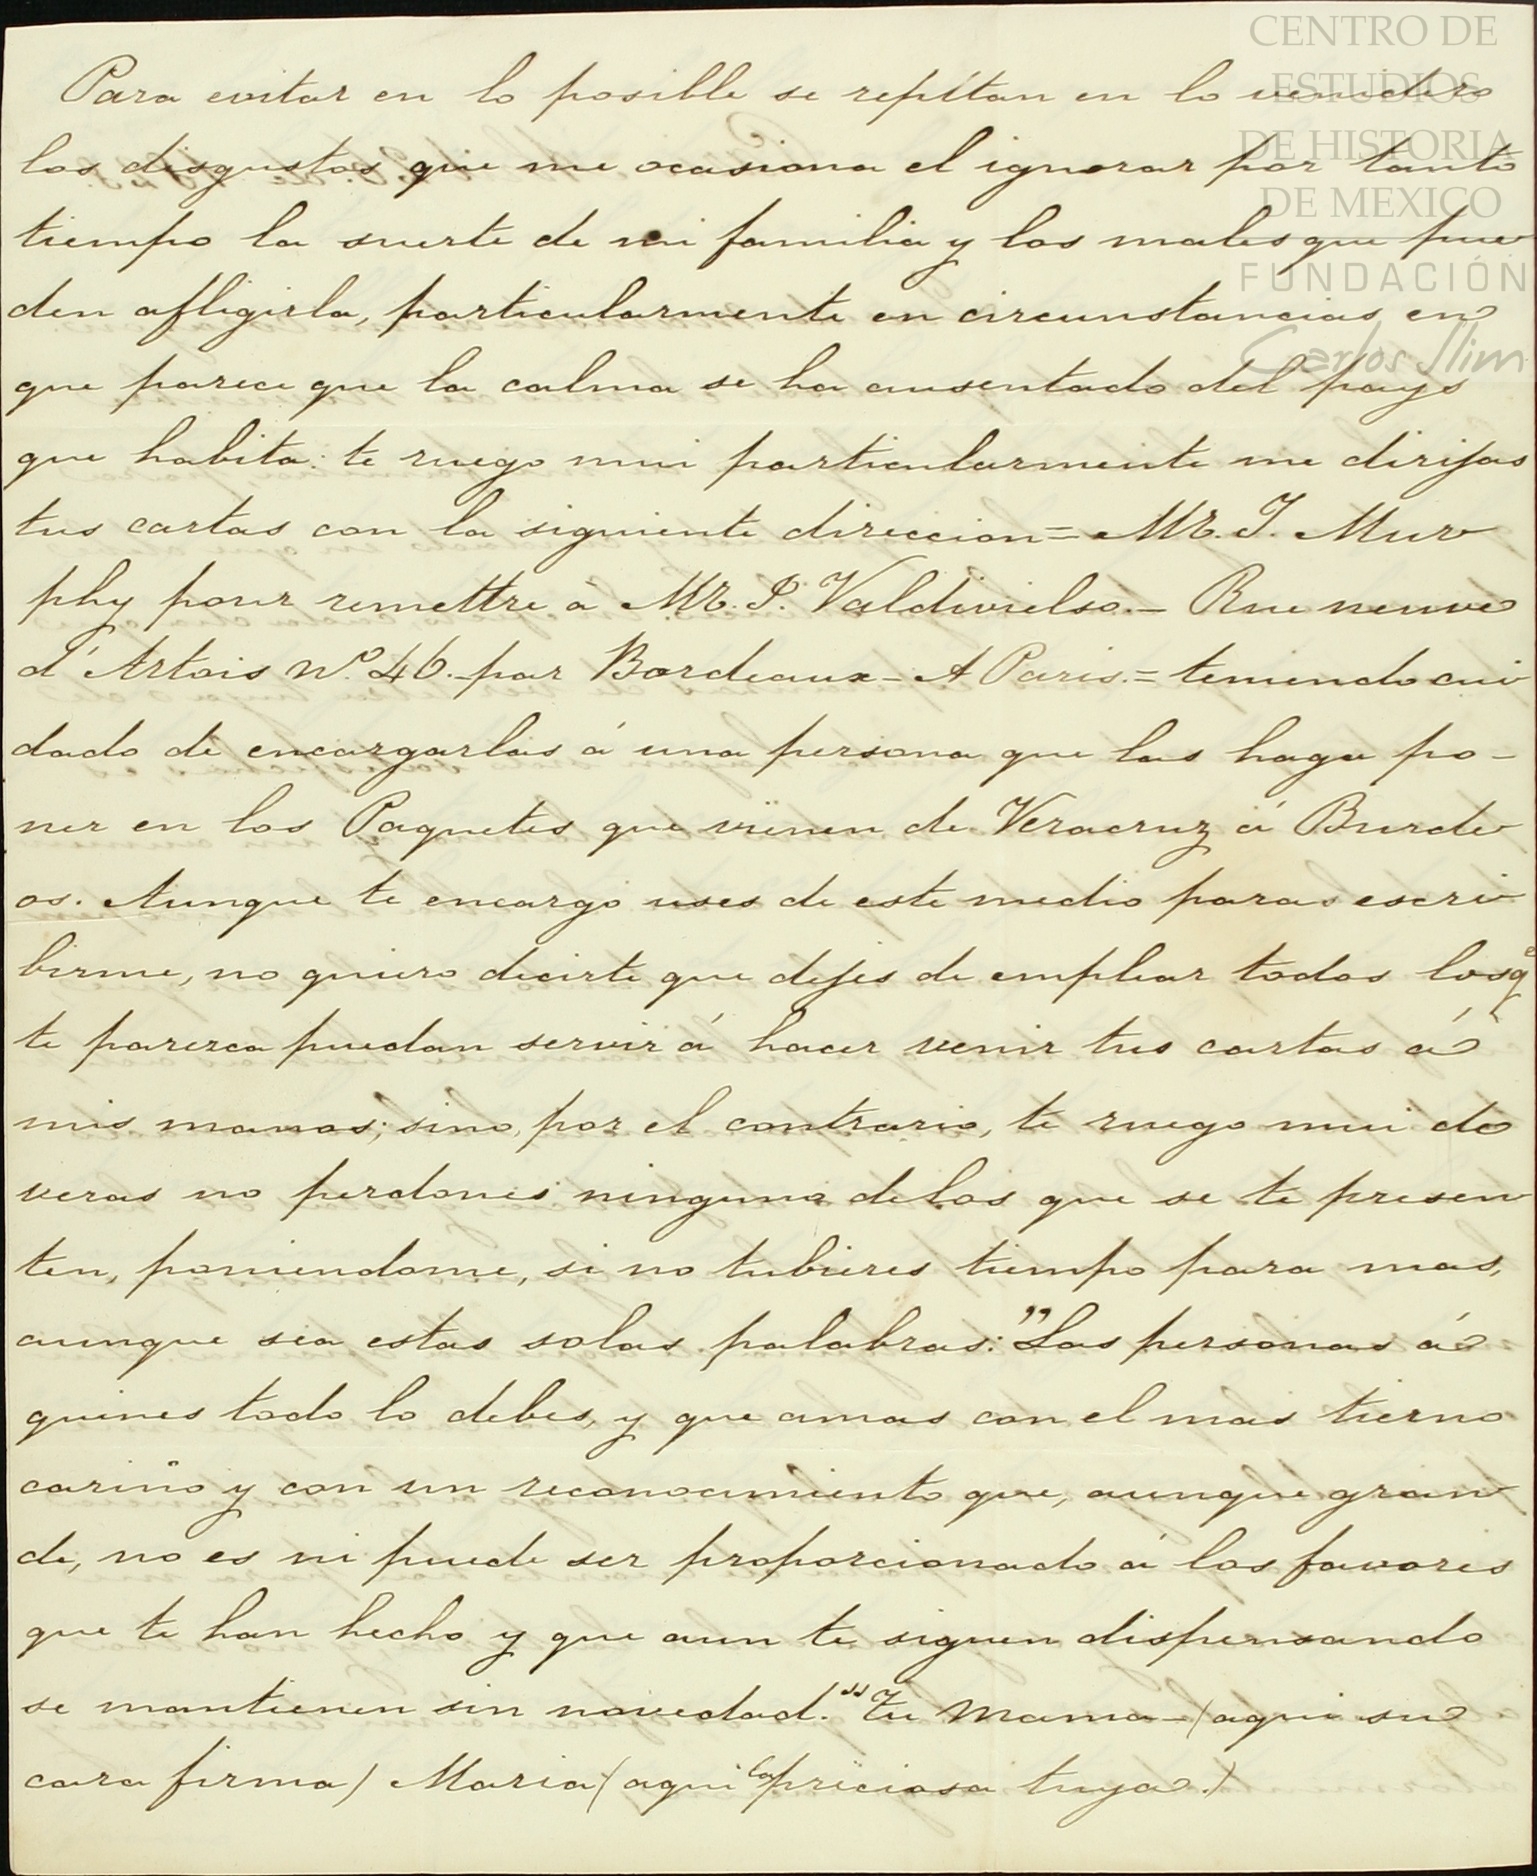 CENTRO DE
ESTUDIOS
DE HISTORIA
DE MEXICO
FUNDACIÓN
Carlos Slim
Para evitar en lo posible se repítan en lo venidero
los disgustos que me ocasiona el ignorar por tanto
tiempo la suerte de mi familia y los males que pue
den afligirla, particularmente en circunstancias en
que parece que la calma se ha ausentado del pays
que habita: te ruego mui particularmente me dirijas
tus cartas con la siguiente direccion = Mr. T. Mur
phy pour remettre à Mr. P. Valdivielso. – Rue neuve
d'Artois No. 46. – par Bordeaux – A Paris. = teniendo cui
dado de encargarlas á una persona que las haga po –
ner en los Paquetes que vienen de Veracruz á Burde
os. Aunque te encargo uses de este medio para escri
birme, no quiero decirte que dejes de emplear todos los qe
te paresca puedan servir á hacer venir tus cartas á
mis manos; sino, por el contrario, te ruego mui de
veras no perdones ninguno de los que se te presen
ten, poniendome, si no tubieres tiempo para mas,
aunque sea estas solas palabras: "Las personas á
quienes todo lo debes, y que amas con el mas tierno
cariño y con un reconocimiento que, aunque gran
de, no es ni puede ser proporcionado á los favores
que te han hecho y que aun te siguen dispensando
se mantienen sin novedad." Tu Mama – (aqui su
cara firma) Maria (aqui la preciosa tuya.)